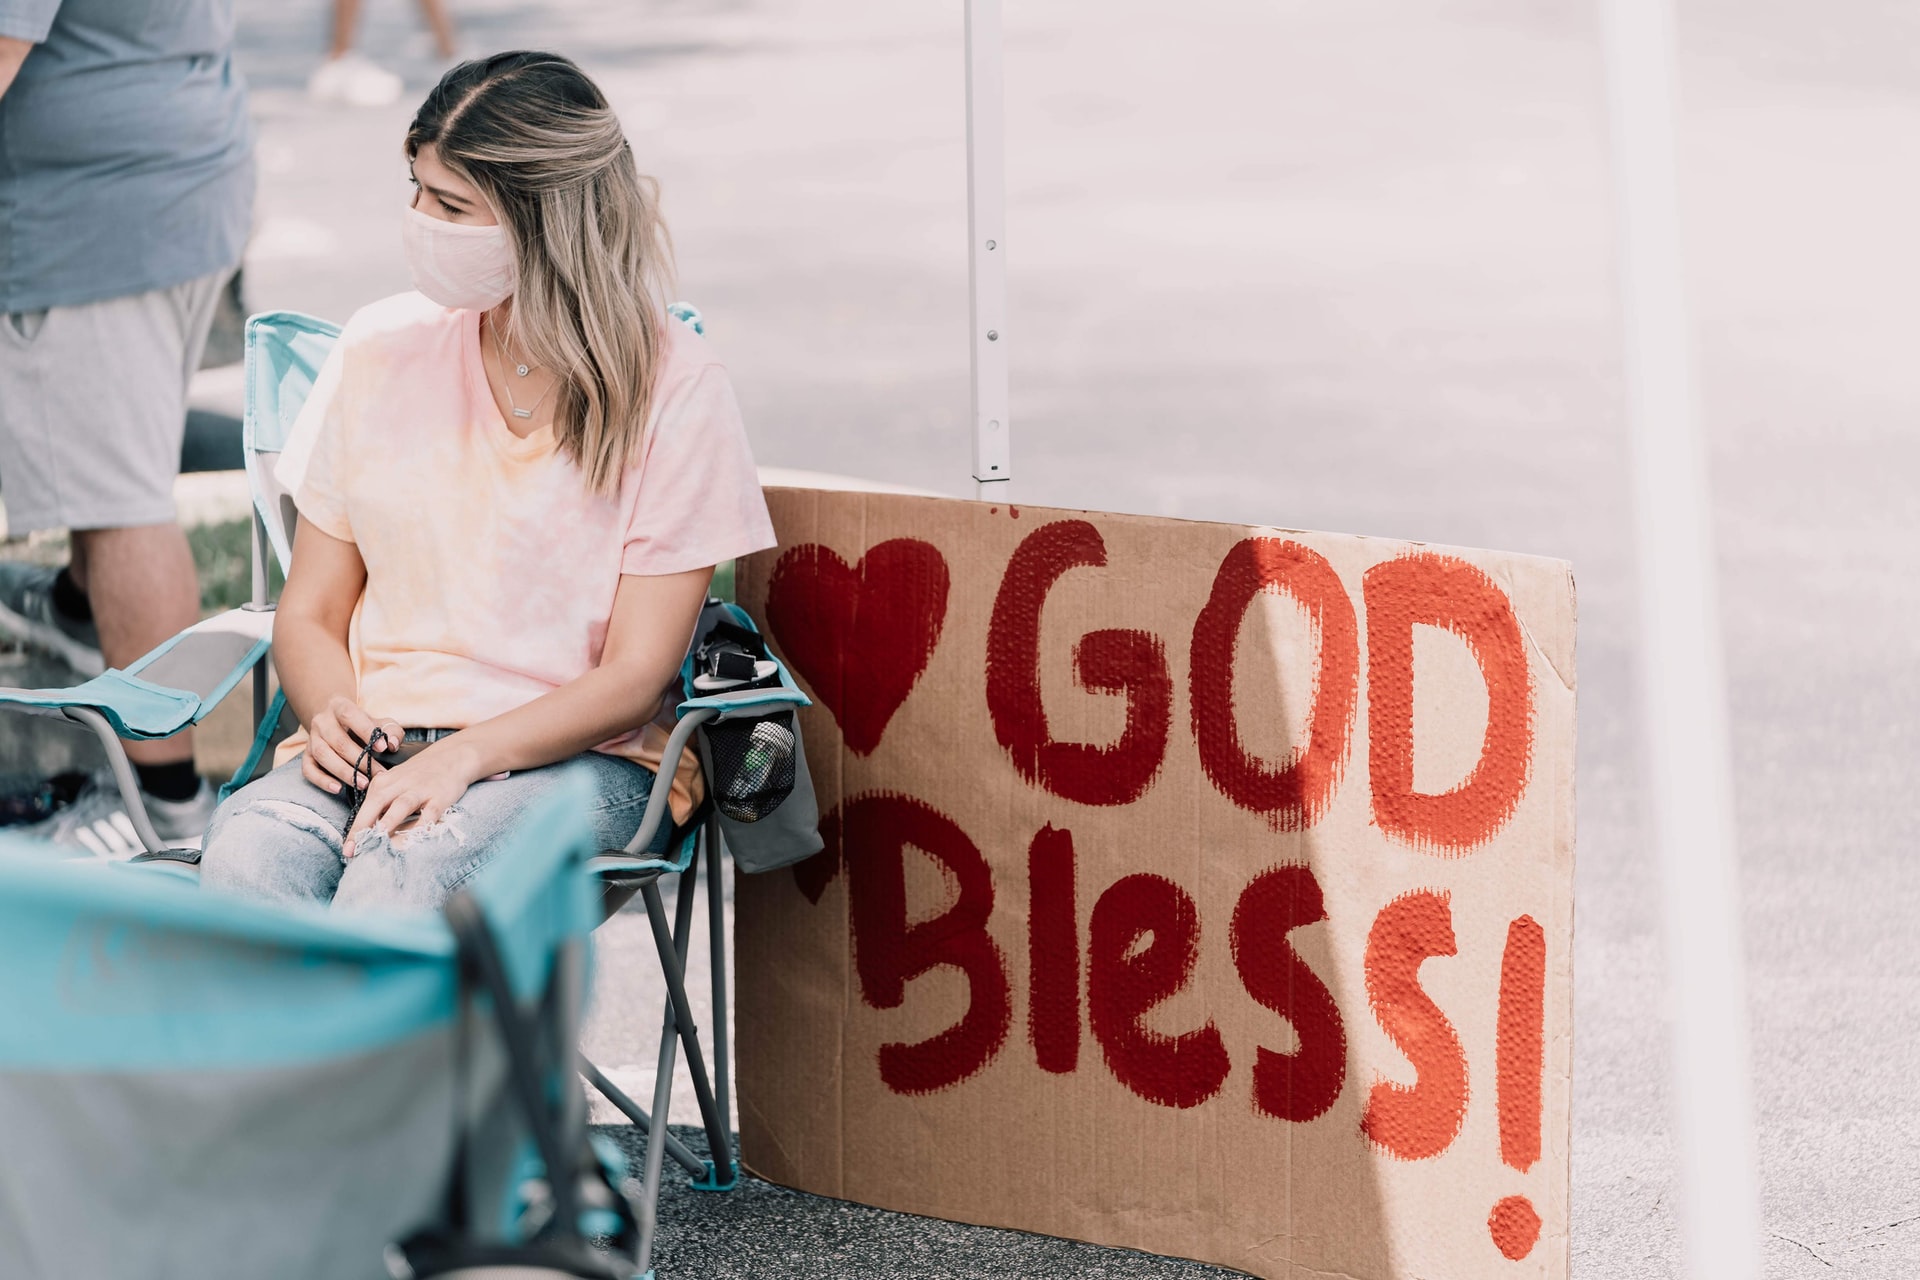 GOD
Bless!